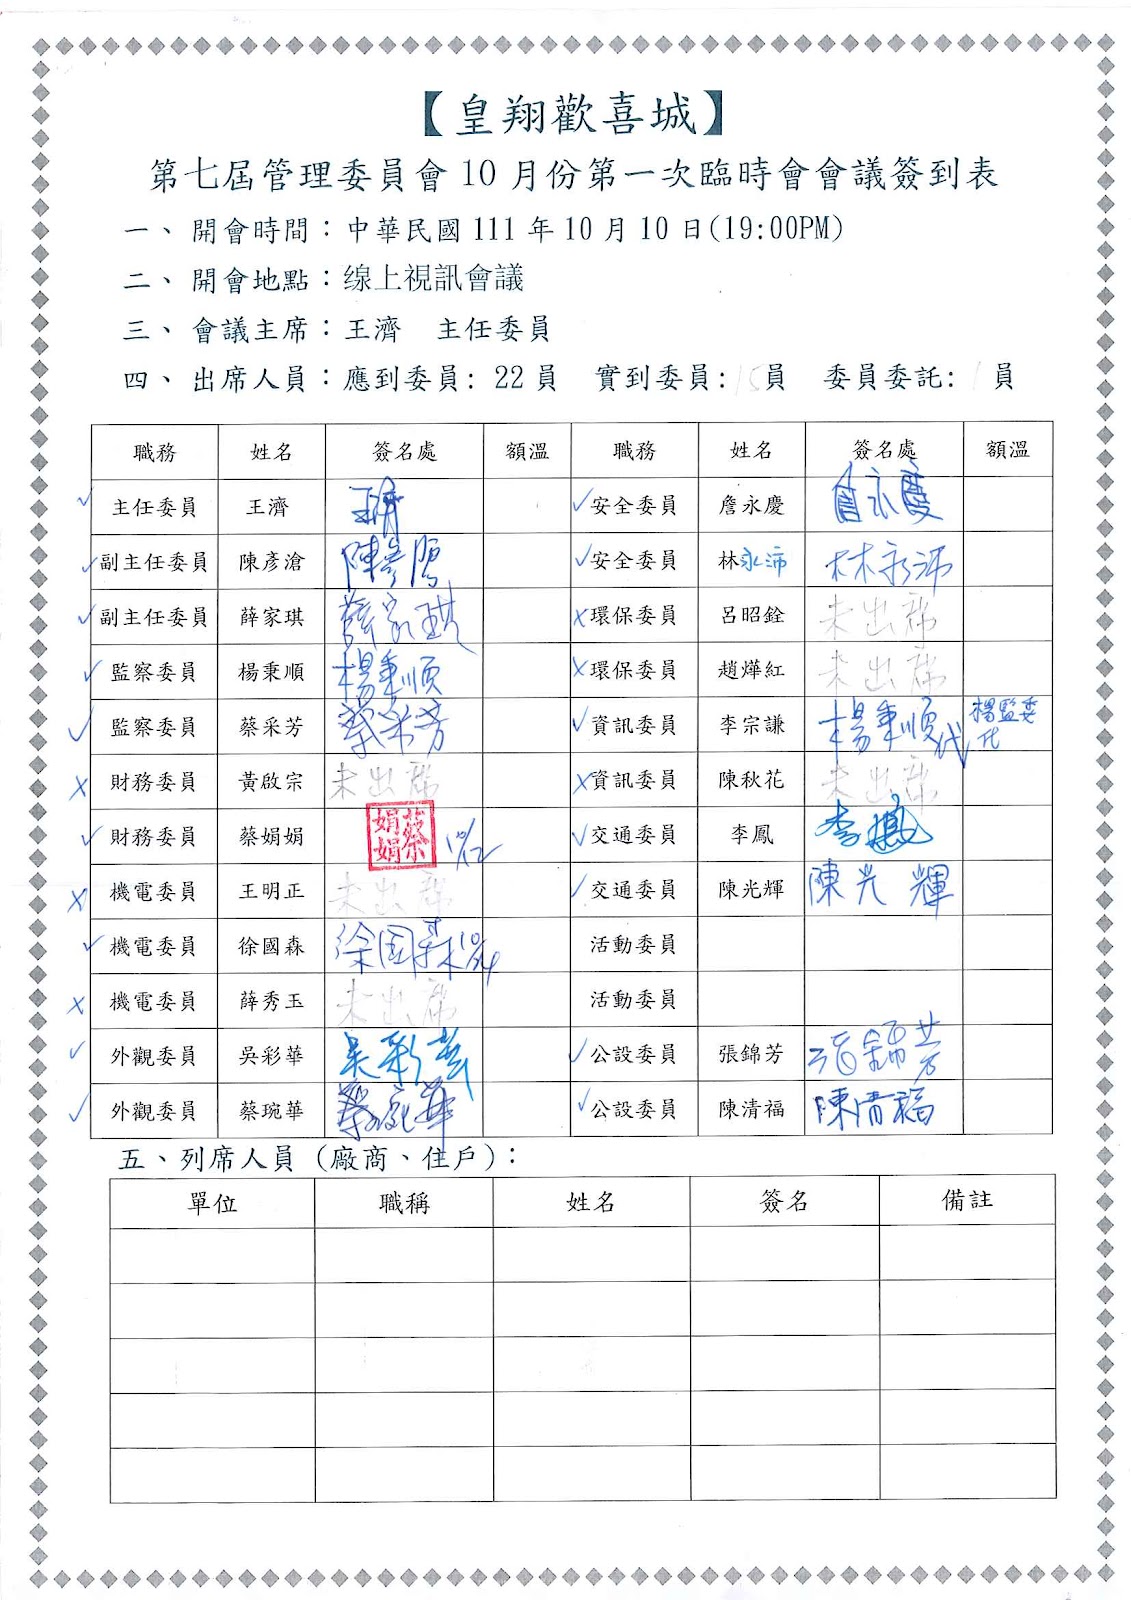 【皇翔歡喜城】
第七屆管理委員會10月份第一次臨時會會議簽到表
一、 開會時間：中華民國111年10月10日(19:00PM)
二、 開會地點：线上視訊會議
三、 會議主席：王濟 主任委員
四、 出席人員：應到委員: 22員 實到委員:15員 委員委託:1員
職務 姓名 簽名處 額溫 職務 姓名 簽名處 額溫
✓ 主任委員 王濟 王濟 ✓ 安全委員 詹永慶 詹永慶
✓ 副主任委員 陳彥滄 陳彥滄 ✓ 安全委員 林永沛 林永沛
✓ 副主任委員 薛家琪 薛家琪 X 環保委員 呂昭銓 未出席
✓ 監察委員 楊秉順 楊秉順 X 環保委員 趙燁紅 未出席
✓ 監察委員 蔡采芳 蔡采芳 ✓ 資訊委員 李宗謙 楊秉順代 楊監委代
X 財務委員 黃啟宗 未出席 X 資訊委員 陳秋花 未出席
✓ 財務委員 蔡娟娟 蔡娟娟 10/12 ✓ 交通委員 李鳳 李鳳
X 機電委員 王明正 未出席 ✓ 交通委員 陳光輝 陳光輝
✓ 機電委員 徐國森 徐國森 10/14 活動委員
X 機電委員 薛秀玉 未出席 活動委員
✓ 外觀委員 吳彩華 吳彩華 ✓ 公設委員 張錦芳 張錦芳
✓ 外觀委員 蔡琬華 蔡琬華 ✓ 公設委員 陳清福 陳清福
五、列席人員 (廠商、住戶)：
單位 職稱 姓名 簽名 備註